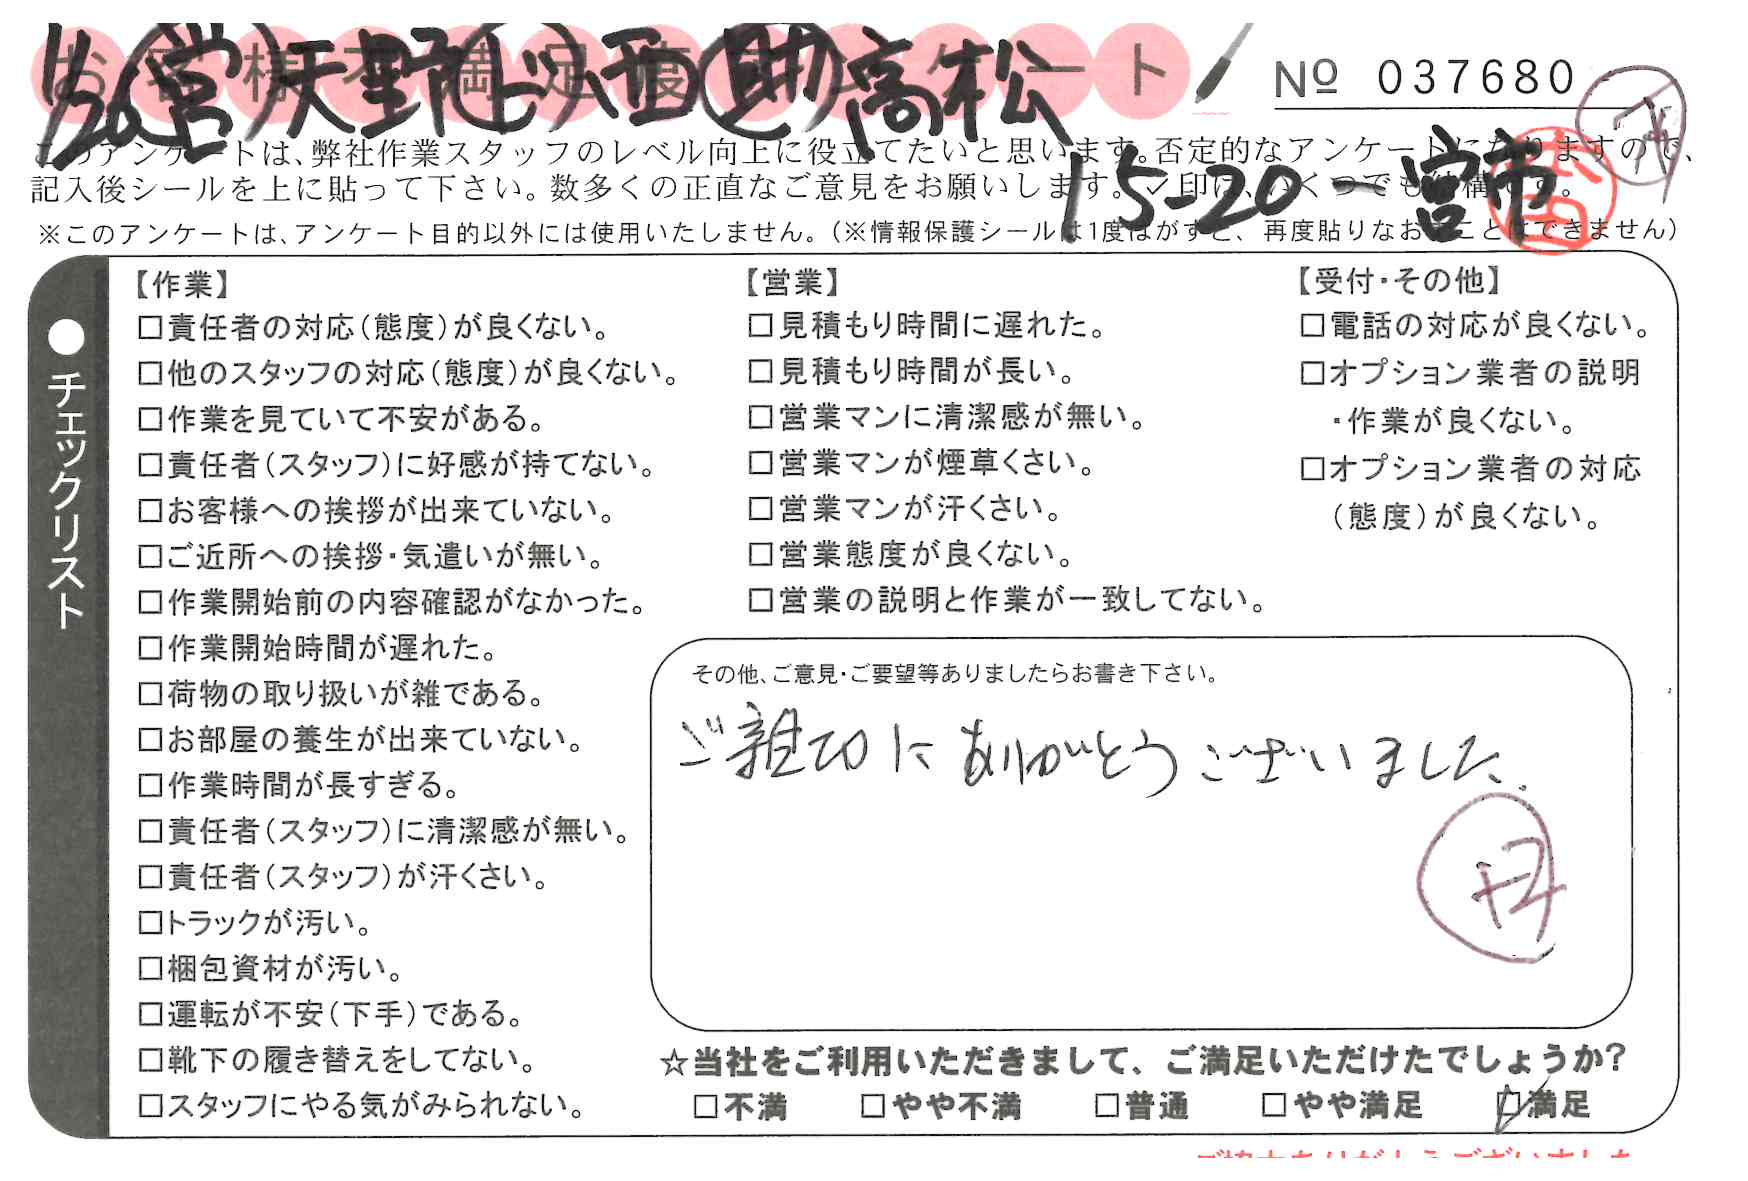 お客様不満足度アンケート
1/26 営 天野 ド 小西 助 高松
№ 037680
このアンケートは、弊社作業スタッフのレベル向上に役立てたいと思います。否定的なアンケートになりますので、
記入後シールを上に貼って下さい。数多くの正直なご意見をお願いします。✓印は、いくつでも結構です。
15-20 一宮市
※このアンケートは、アンケート目的以外には使用いたしません。(※情報保護シールは1度はがすと、再度貼りなおすことはできません)
●チェックリスト
【作業】
□責任者の対応(態度)が良くない。
□他のスタッフの対応(態度)が良くない。
□作業を見ていて不安がある。
□責任者(スタッフ)に好感が持てない。
□お客様への挨拶が出来ていない。
□ご近所への挨拶・気遣いが無い。
□作業開始前の内容確認がなかった。
□作業開始時間が遅れた。
□荷物の取り扱いが雑である。
□お部屋の養生が出来ていない。
□作業時間が長すぎる。
□責任者(スタッフ)に清潔感が無い。
□責任者(スタッフ)が汗くさい。
□トラックが汚い。
□梱包資材が汚い。
□運転が不安(下手)である。
□靴下の履き替えをしてない。
□スタッフにやる気がみられない。
【営業】
□見積もり時間に遅れた。
□見積もり時間が長い。
□営業マンに清潔感が無い。
□営業マンが煙草くさい。
□営業マンが汗くさい。
□営業態度が良くない。
□営業の説明と作業が一致してない。
【受付・その他】
□電話の対応が良くない。
□オプション業者の説明
・作業が良くない。
□オプション業者の対応
(態度)が良くない。
その他、ご意見・ご要望等ありましたらお書き下さい。
ご親切にありがとうございました。
☆当社をご利用いただきまして、ご満足いただけたでしょうか?
□不満 □やや不満 □普通 □やや満足 ☑満足
ご協力ありがとうございました